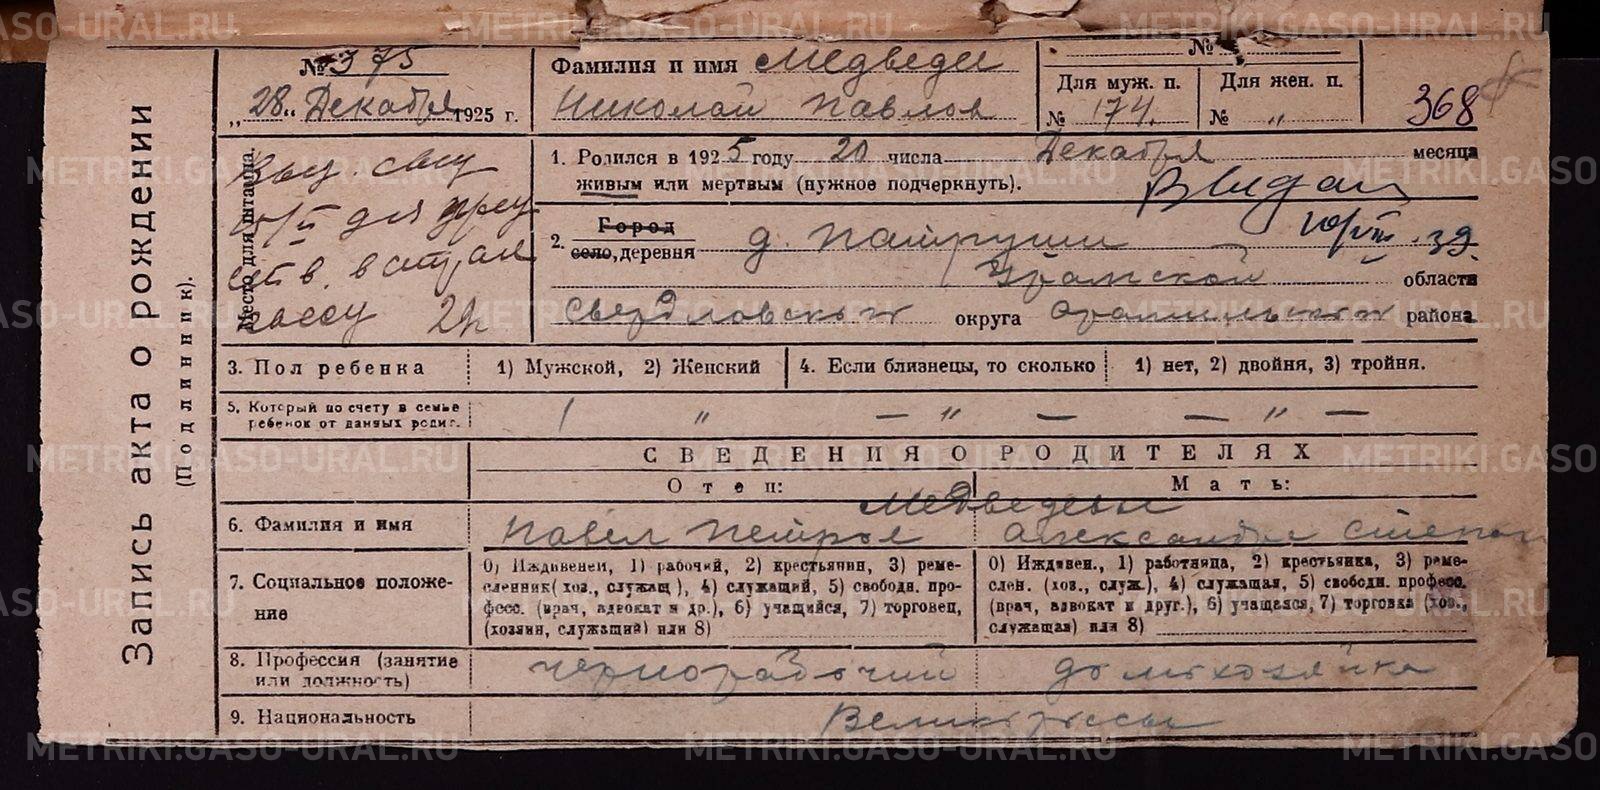 METRIKI.GASO-URAL.RU
Запись акта о рождении
(Подлинник).
№ 375
„28“ Декабря 1925 г.
Место для штампа.
Выд. свид
для
в.
кассу
Фамилия и имя Медведев
Николай Павлов
№
Для муж. п. Для жен. п.
№ 174. № „
368
1. Родился в 1925 году 20 числа Декабря месяца
живым или мертвым (нужное подчеркнуть).
Выдан
39.
2. Город
село, деревня д. Патруши
Уральской области
Свердловского округа Арамильского района
3. Пол ребенка 1) Мужской, 2) Женский 4. Если близнецы, то сколько 1) нет, 2) двойня, 3) тройня.
5. Который по счету в семье
ребенок от данных родит. 1 „ — „ — — „ —
СВЕДЕНИЯ О РОДИТЕЛЯХ
Отец: Мать:
Медведевы
6. Фамилия и имя Павел Петров Александра Степан
7. Социальное положе-
ние
0) Иждивенец, 1) рабочий, 2) крестьянин, 3) реме-
сленник (хоз., служащ.), 4) служащий, 5) свободн. про-
фесс. (врач, адвокат и др.), 6) учащийся, 7) торговец,
(хозяин, служащий) или 8)
0) Иждивен., 1) работница, 2) крестьянка, 3) реме-
слен. (хоз., служ.), 4) служащая, 5) свободн. професс.
(врач, адвокат и друг.), 6) учащаяся, 7) торговка (хоз.,
служащая) или 8)
8. Профессия (занятие
или должность) чернорабочий домохозяйка
9. Национальность Великороссы